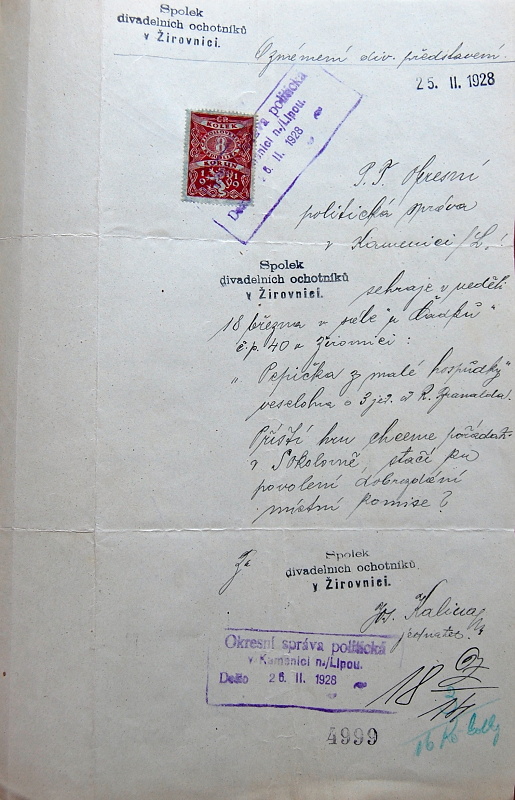 Spolek
divadelních ochotníků
v Žirovnici.
Oznámení div. představení.
25. II. 1928
Okresní správa politická
v Kamenici n./Lipou.
Došlo 26. II. 1928
ČR
KOLEK
8
KORUN
1919
P. T. Okresní
politická správa
v Kamenici /L.
Spolek
divadelních ochotníků
v Žirovnici.
sehraje v neděli
18 března v sále "u Čadků"
č.p. 40 v Žirovnici :
"Pepička z malé hospůdky"
veselohra o 3 jed. od R.
Příští hru chceme pořádat
v Sokolovně, stačí ku
povolení dobrozdání
místní komise?
Za
Spolek
divadelních ochotníků
v Žirovnici.
Jos. Kalina
jednatel.
Okresní správa politická
v Kamenici n./Lipou.
Došlo 26. II. 1928
18
4999